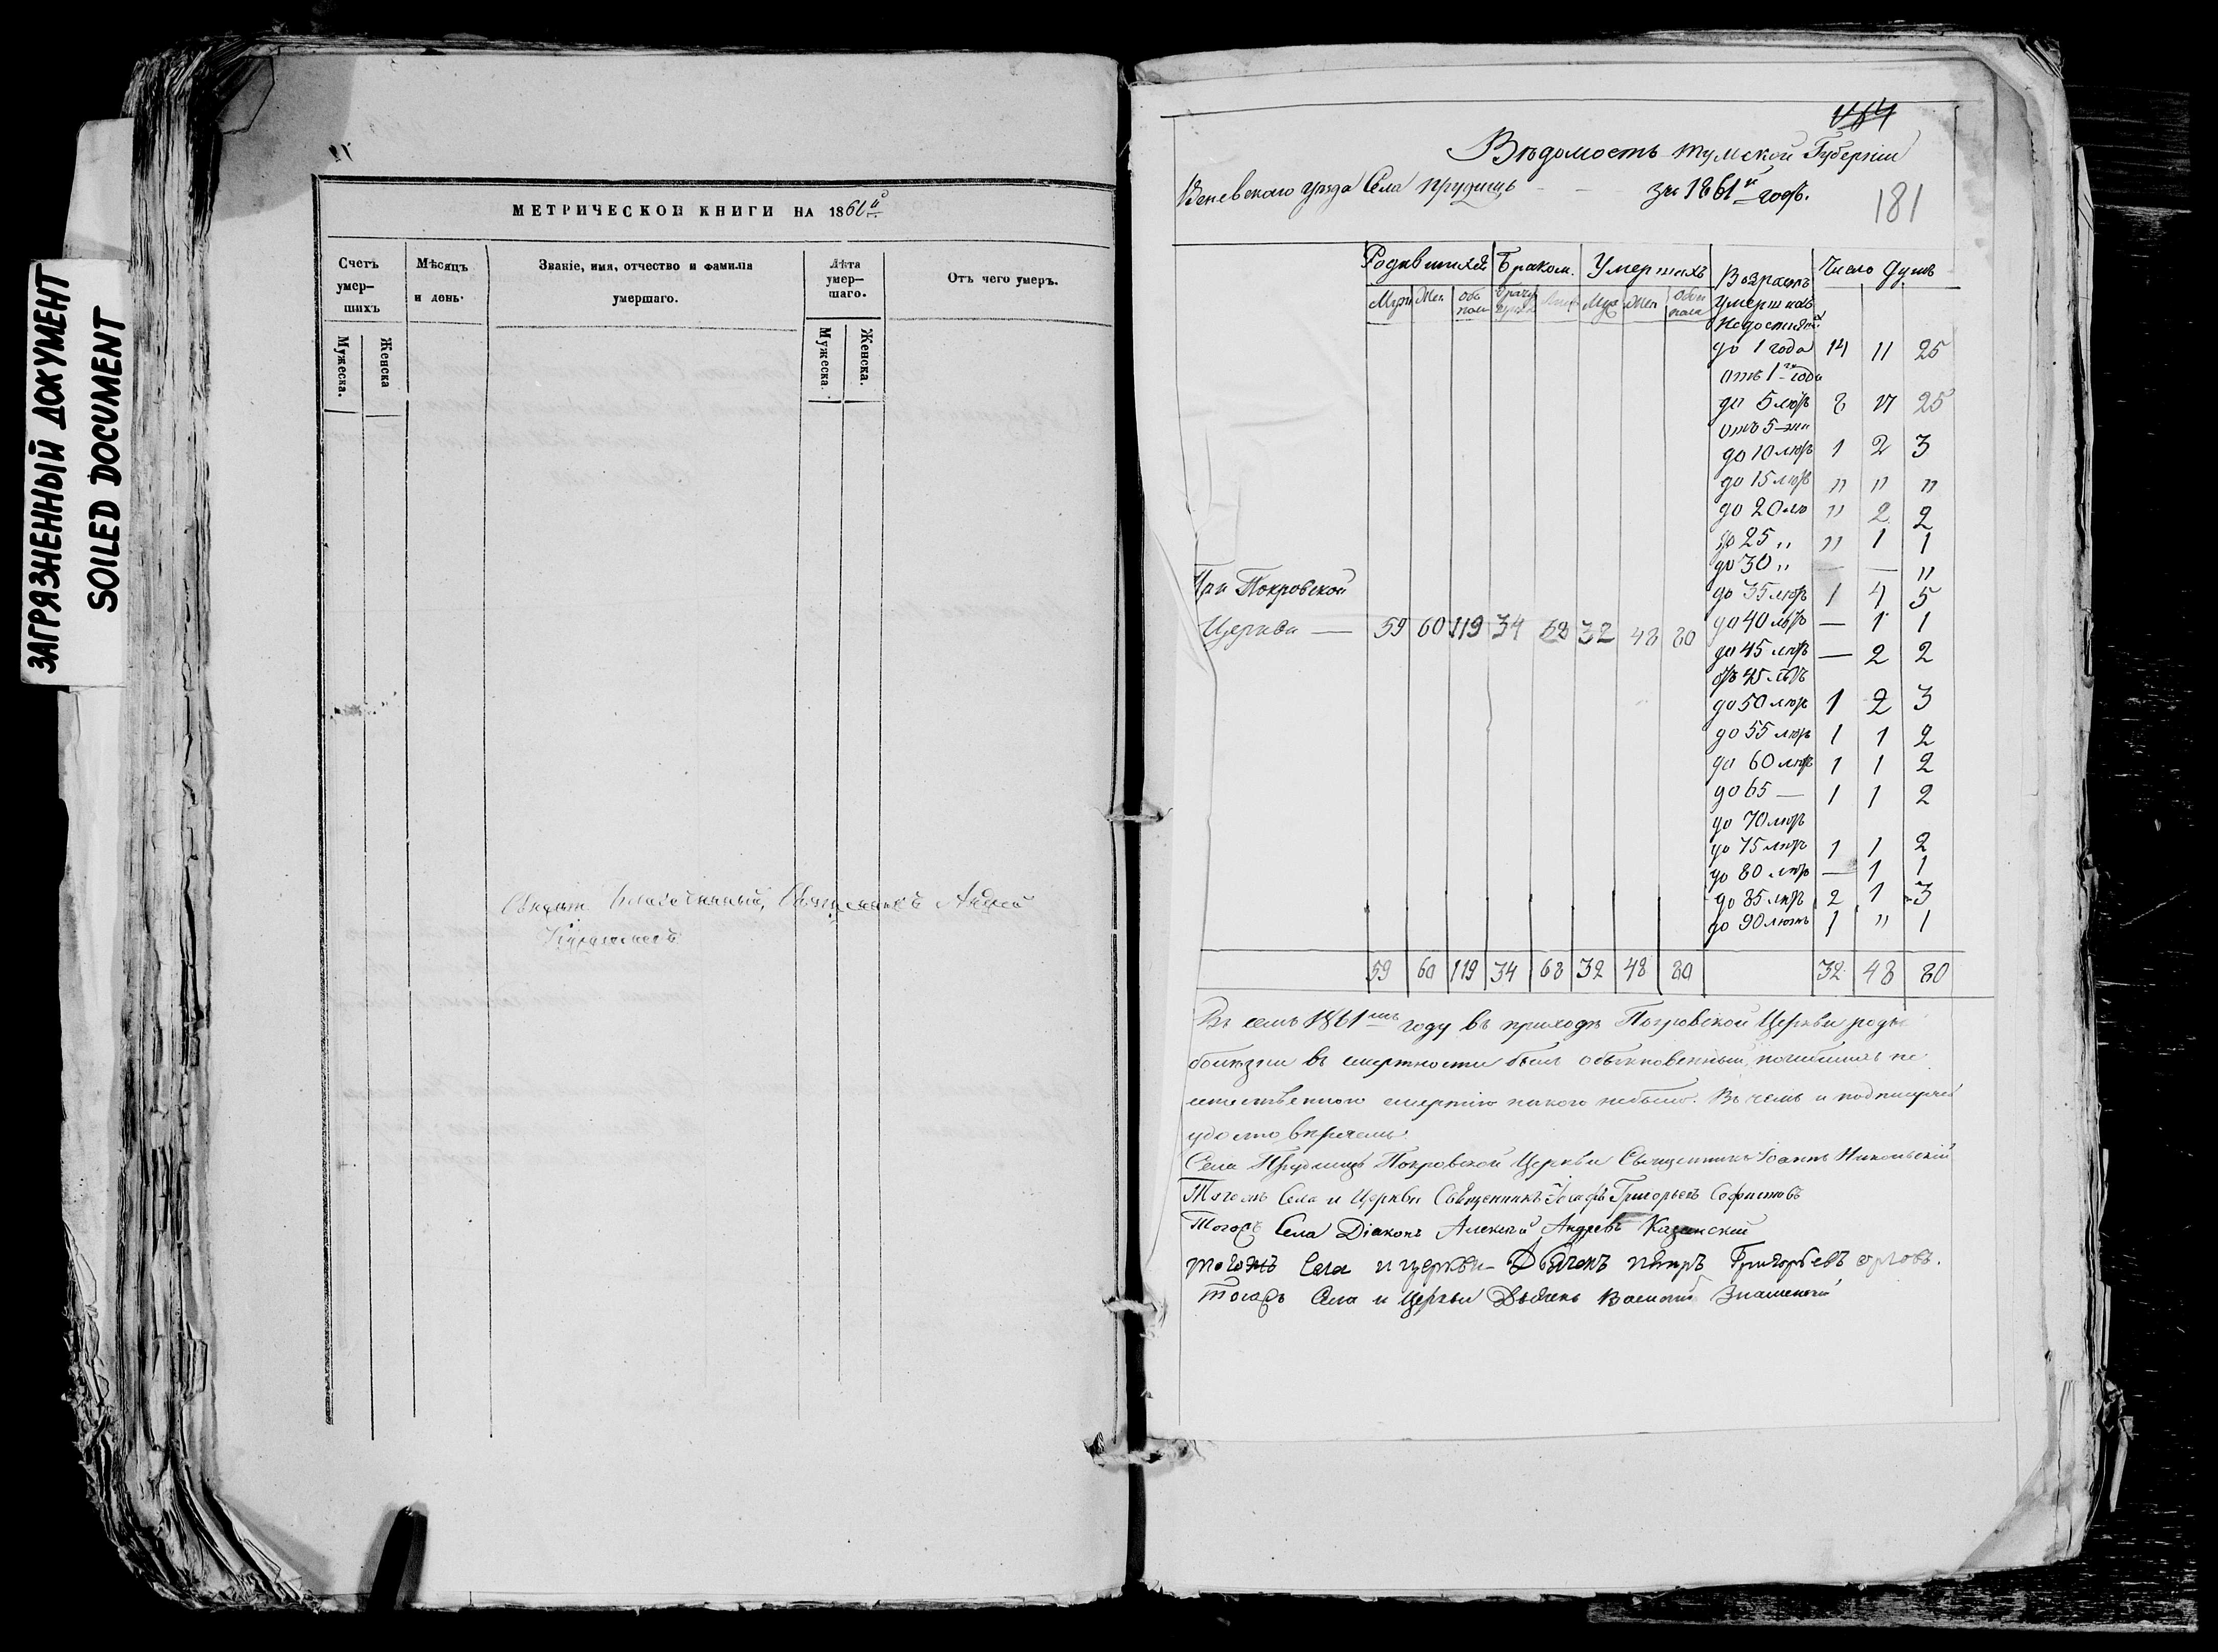 ЗАГРЯЗНЕННЫЙ ДОКУМЕНТ
SOILED DOCUMENT
МЕТРИЧЕСКОЙ КНИГИ НА 1861й
Счетъ умер-шихъ
Мѣсяцъ и день.
Званіе, имя, отчество и фамилія умершаго.
Лѣта умер-шаго.
Отъ чего умеръ.
Мужеска. Женска Мужеска. Женска.
Благочинный, Священникъ Андрей
184
Вѣдомость Тульской Губерніи
Веневскаго уѣзда Села Прудищъ за 1861й годъ.
181
Родившихся Браком. Умершихъ Возрастъ умершихъ Число душъ
Муж Жен Обо пола Муж Жен Обои пола
до 1 года 14 11 25
отъ 1го года
до 5 лѣтъ 8 17 25
отъ 5-ти
до 10 лѣтъ 1 2 3
до 15 лѣтъ " " "
до 20 лѣ " 2 2
до 25 " " 1 1
до 30 " — — "
до 35 лѣтъ 1 4 5
При Покровской
до 40 лѣтъ — 1 1
Церкви — 59 60 119 34 68 32 48 80
до 45 лѣтъ — 2 2
отъ 45 лѣтъ
до 50 лѣтъ 1 2 3
до 55 лѣтъ 1 1 2
до 60 лѣтъ 1 1 2
до 65 — 1 1 2
до 70 лѣтъ
до 75 лѣтъ 1 1 2
до 80 лѣтъ — 1 1
до 85 лѣтъ 2 1 3
до 90 лѣтъ 1 " 1
59 60 119 34 68 32 48 80 32 48 80
Въ семъ 1861мъ году въ приходѣ Покровской Церкви роды
болѣзни въ смертности были обыкновенныя, погибшихъ не
естественною смертію никого небыло. Въ чемъ и подписуемся
удостовѣряемъ.
Села Прудищъ Покровской Церкви Священникъ Іоаннъ Никольскій
Тогожъ Села и Церкви Священникъ Григорьевъ
Тогожъ Села Діаконъ Алексѣй Андревъ Казанскій
тогожъ Села и церкви Дьячокъ Петръ Григорьевъ орловъ.
тогожъ Села и Церкви Дьячекъ Василій Знаменскій